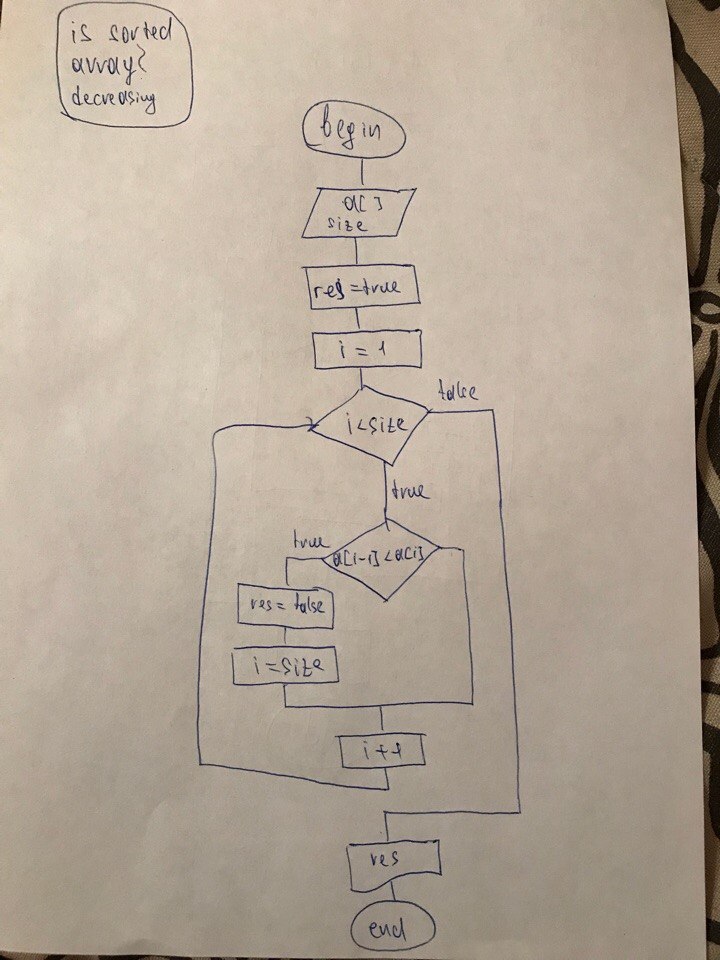 is sorted
array?
decreasing
begin
a[ ]
size
res = true
i = 1
i < size
false
true
a[i-1] < a[i]
true
res = false
i = size
i++
res
end